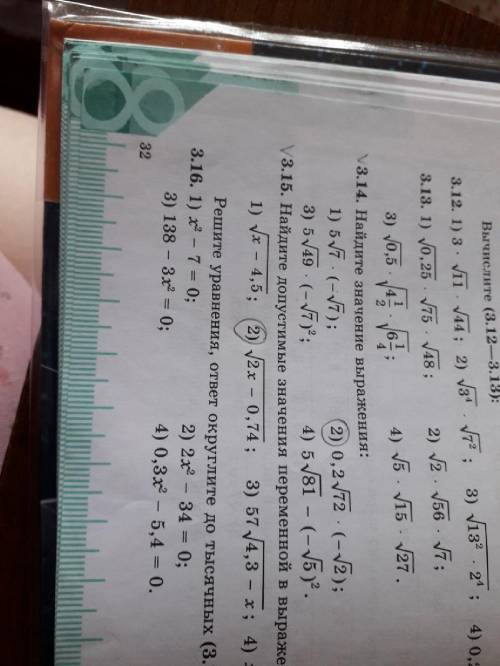 Вычислите (3.12—3.13):
3.12. 1) 3 · √11 · √44; 2) √3⁴ · √7²; 3) √13² · 2⁴; 4) 0,
3.13. 1) √0,25 · √75 · √48; 2) √2 · √56 · √7;
3) √0,5 · √4 1/2 · √6 1/4; 4) √5 · √15 · √27.
√3.14. Найдите значение выражения:
1) 5√7 · (−√7); 2) 0,2√72 · (−√2);
3) 5√49 · (−√7)²; 4) 5√81 − (−√5)².
√3.15. Найдите допустимые значения переменной в выраже
1) √x − 4,5; 2) √2x − 0,74; 3) 57√4,3 − x; 4)
Решите уравнения, ответ округлите до тысячных (3.
3.16. 1) x² − 7 = 0; 2) 2x² − 34 = 0;
3) 138 − 3x² = 0; 4) 0,3x² − 5,4 = 0.
32